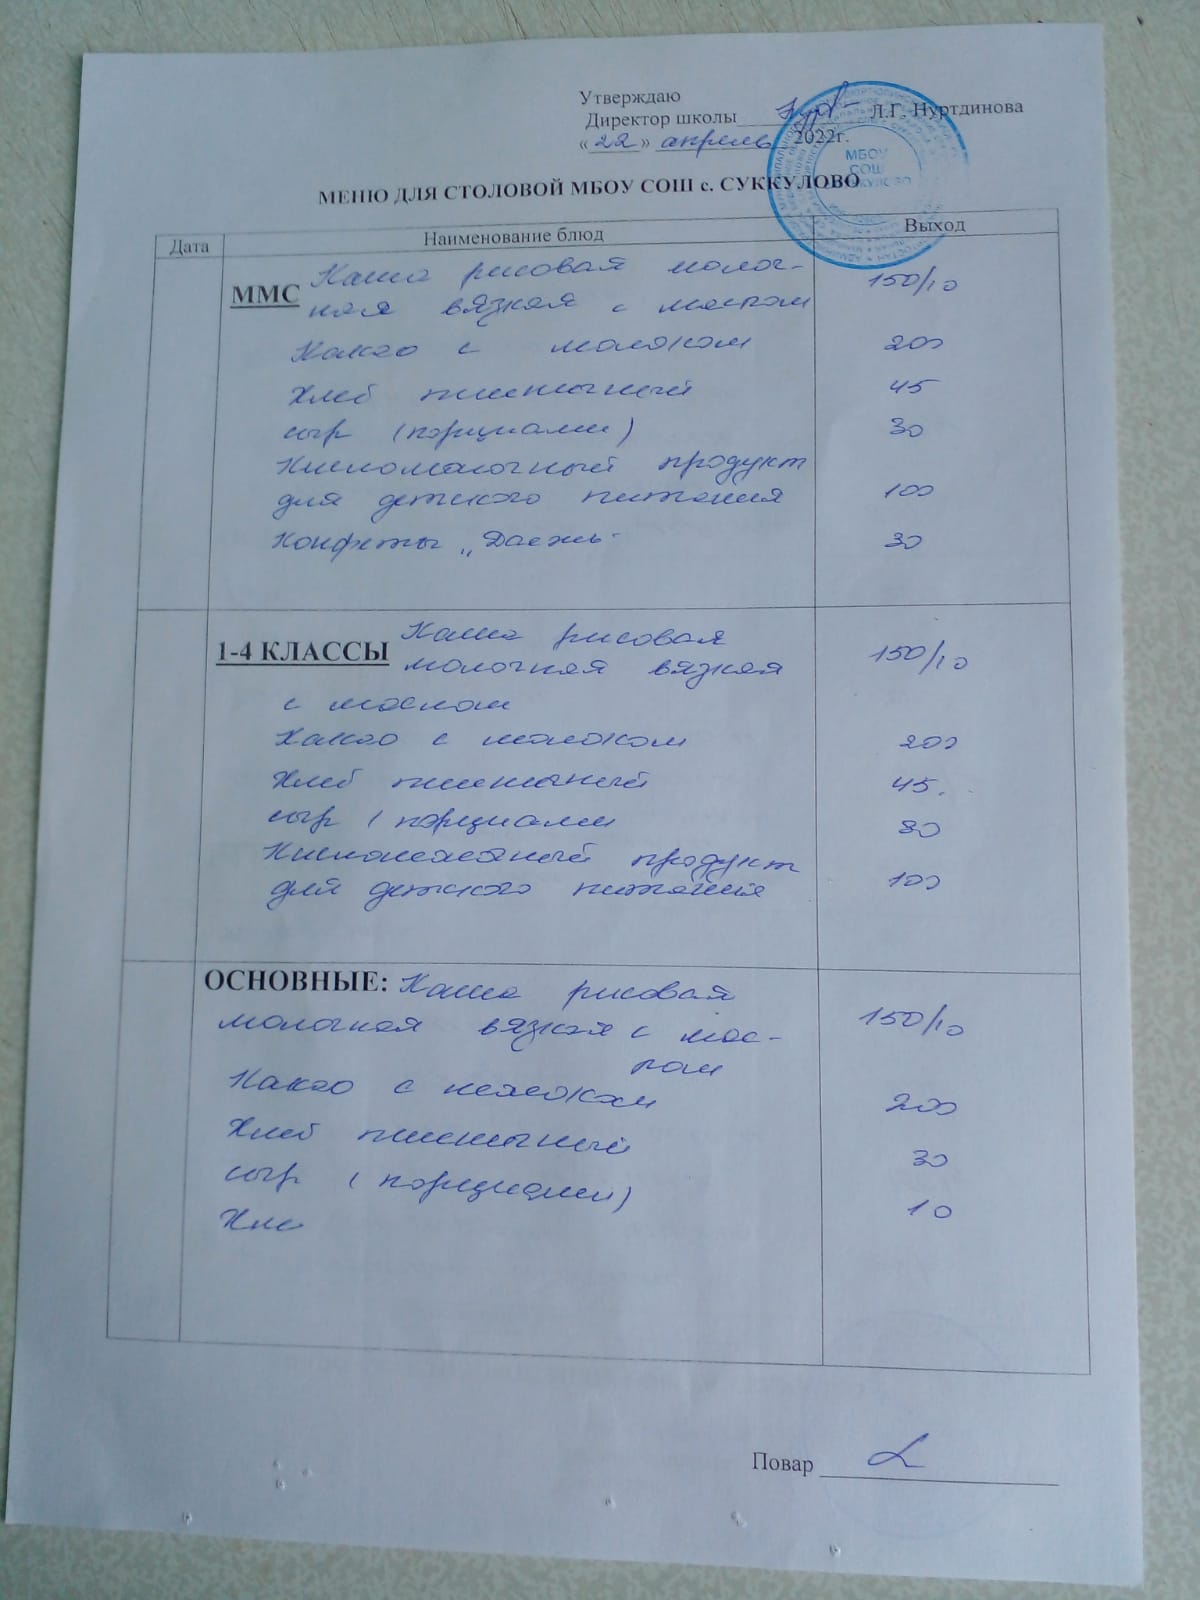 Утверждаю
Директор школы Л.Г. Нуртдинова
«22» апрель 2022г.
МБОУ
СОШ
МЕНЮ ДЛЯ СТОЛОВОЙ МБОУ СОШ с. СУККУЛОВО
Дата Наименование блюд Выход
ММС Каша рисовая молоч-
ная вязкая с маслом 150/10
Какао с молоком 200
Хлеб пшеничный 45
сыр (порциами) 30
Кисломолочный продукт
для детского питания 100
Конфеты
30
1-4 КЛАССЫ Каша рисовая
молочная вязкая 150/10
с маслом
Какао с молоком 200
Хлеб пшеничный 45.
сыр (порциами
Кисломолочный продукт
для детского питания 100
ОСНОВНЫЕ: Каша рисовая
молочная вязкая с мас-
лом 150/10
Какао с молоком 200
Хлеб пшеничный 30
сыр (порциами) 10
Хле
Повар